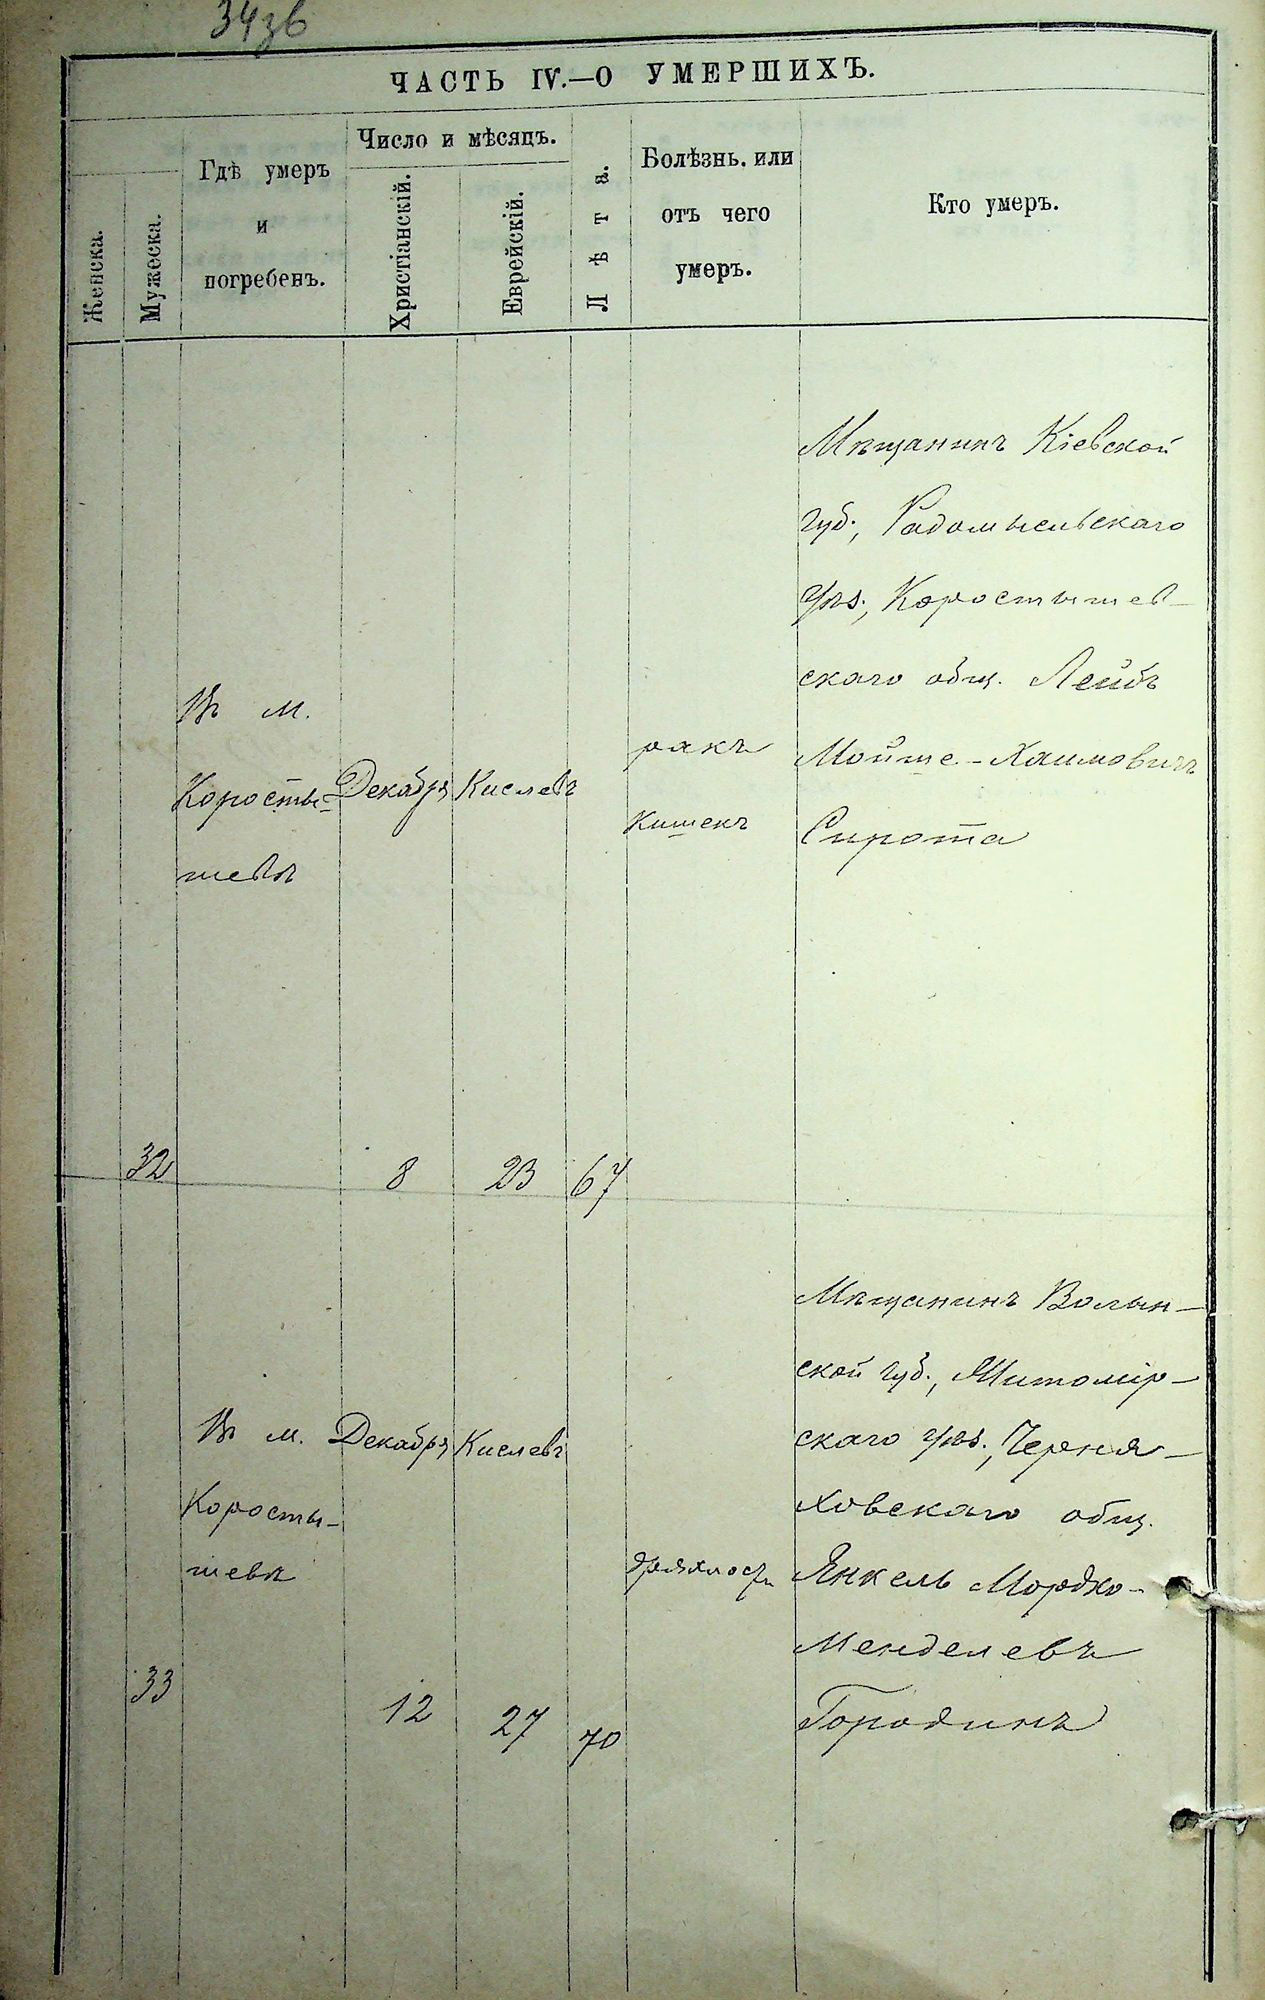 34зв
ЧАСТЬ IV.—О УМЕРШИХЪ.
Женска.
Мужеска.
Гдѣ умеръ
и
погребенъ.
Число и мѣсяцъ.
Христіанскій.
Еврейскій.
Лѣта.
Болѣзнь. или
отъ чего
умеръ.
Кто умеръ.
32
Въ м.
Коросты-
шевѣ
Декабря
8
Кислевъ
23
67
ракъ
кишекъ
Мѣщанинъ Кіевской
губ., Радомысльскаго
уѣз., Коростышев-
скаго общ. Лейбъ
Мойше-Хаимовичъ
Сирота
33
Въ м.
Коросты-
шевѣ
Декабря
12
Кислевъ
27
70
дряхлость
Мѣщанинъ Волын-
ской губ., Житомір-
скаго уѣз., Черня-
ховскаго общ.
Янкель Мордко-
Менделевъ
Городинъ